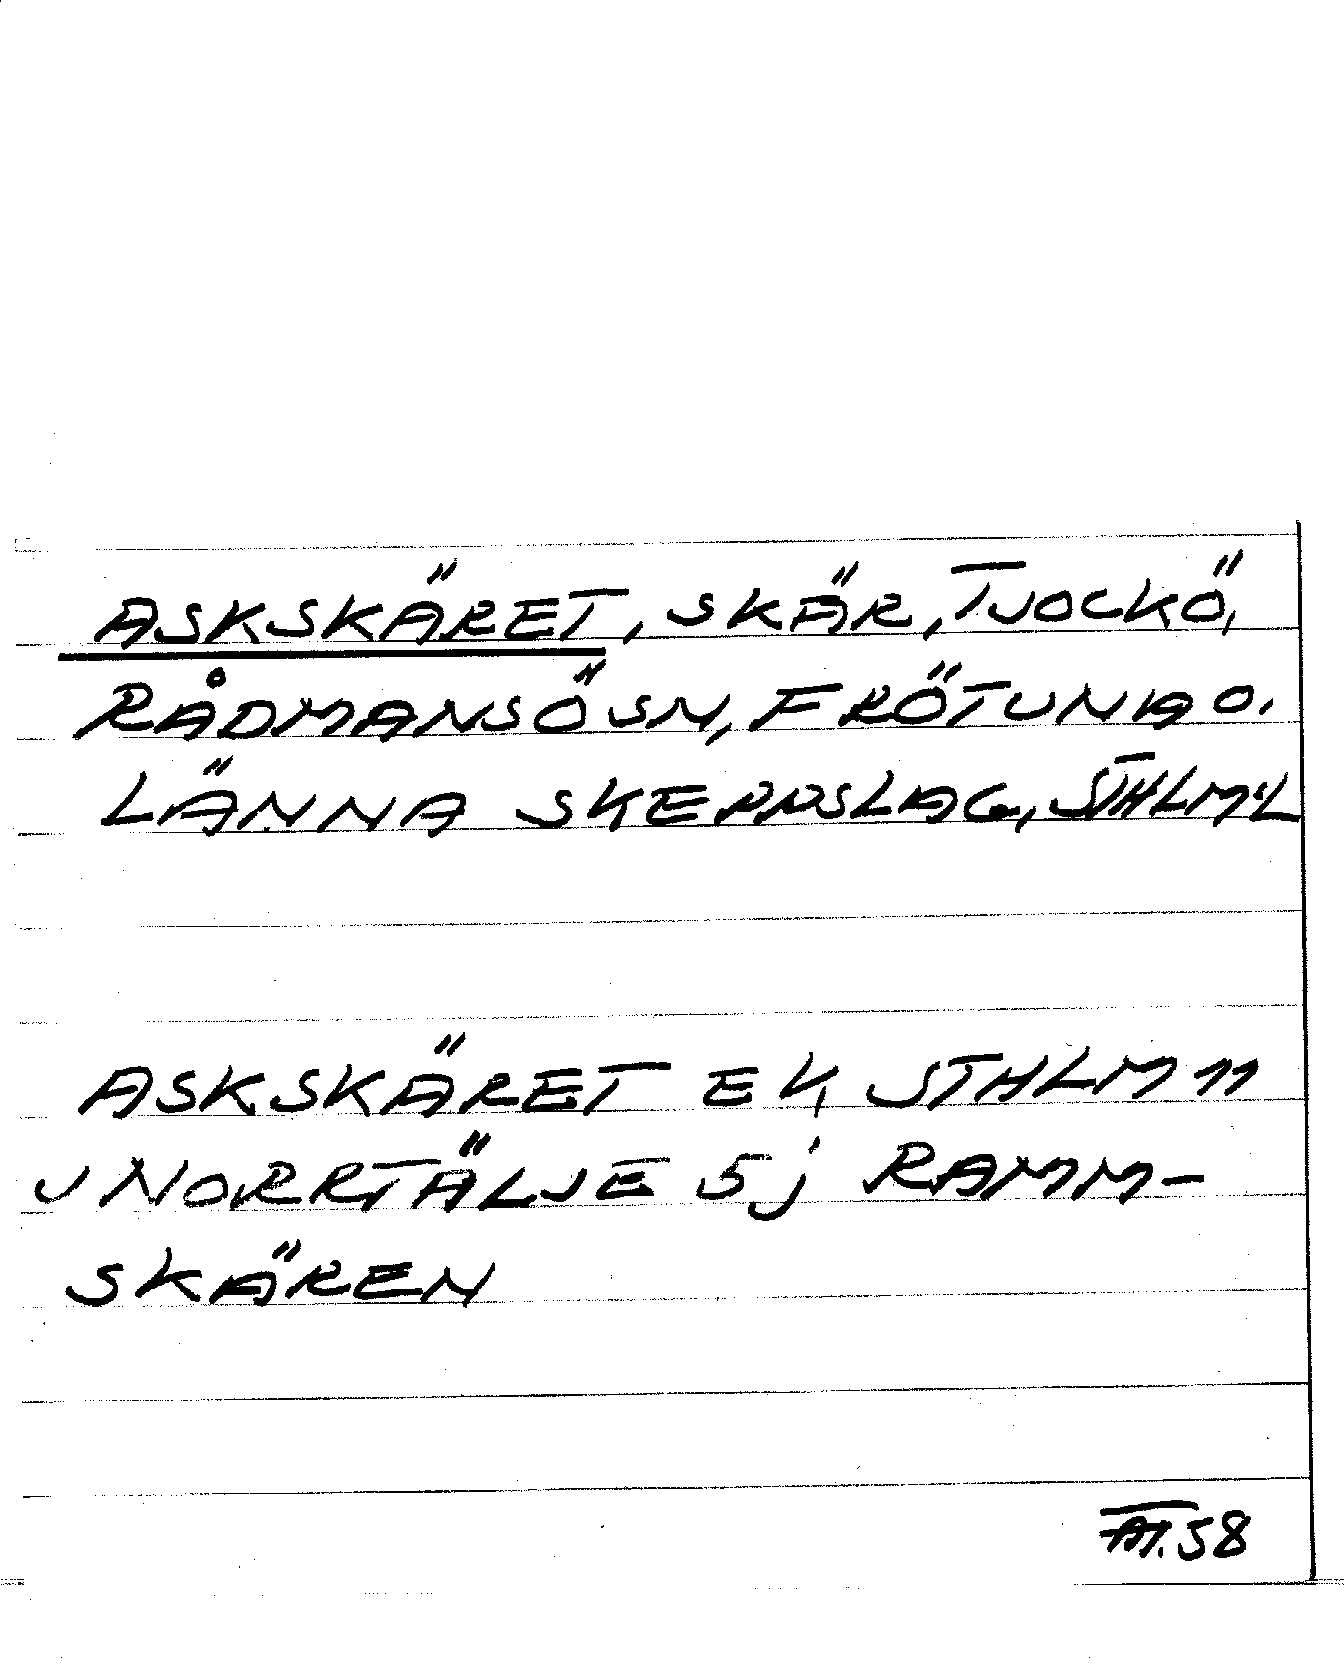 ASKSKÄRET, SKÄR, TJOCKÖ,
RÅDMANSÖ SN, FRÖTUNA O.
LÄNNA SKEPPSLAG, STHLM:L
ASKSKÄRET EK, STHLM 11
NORRTÄLJE 5j RAMM-
SKÄREN
58